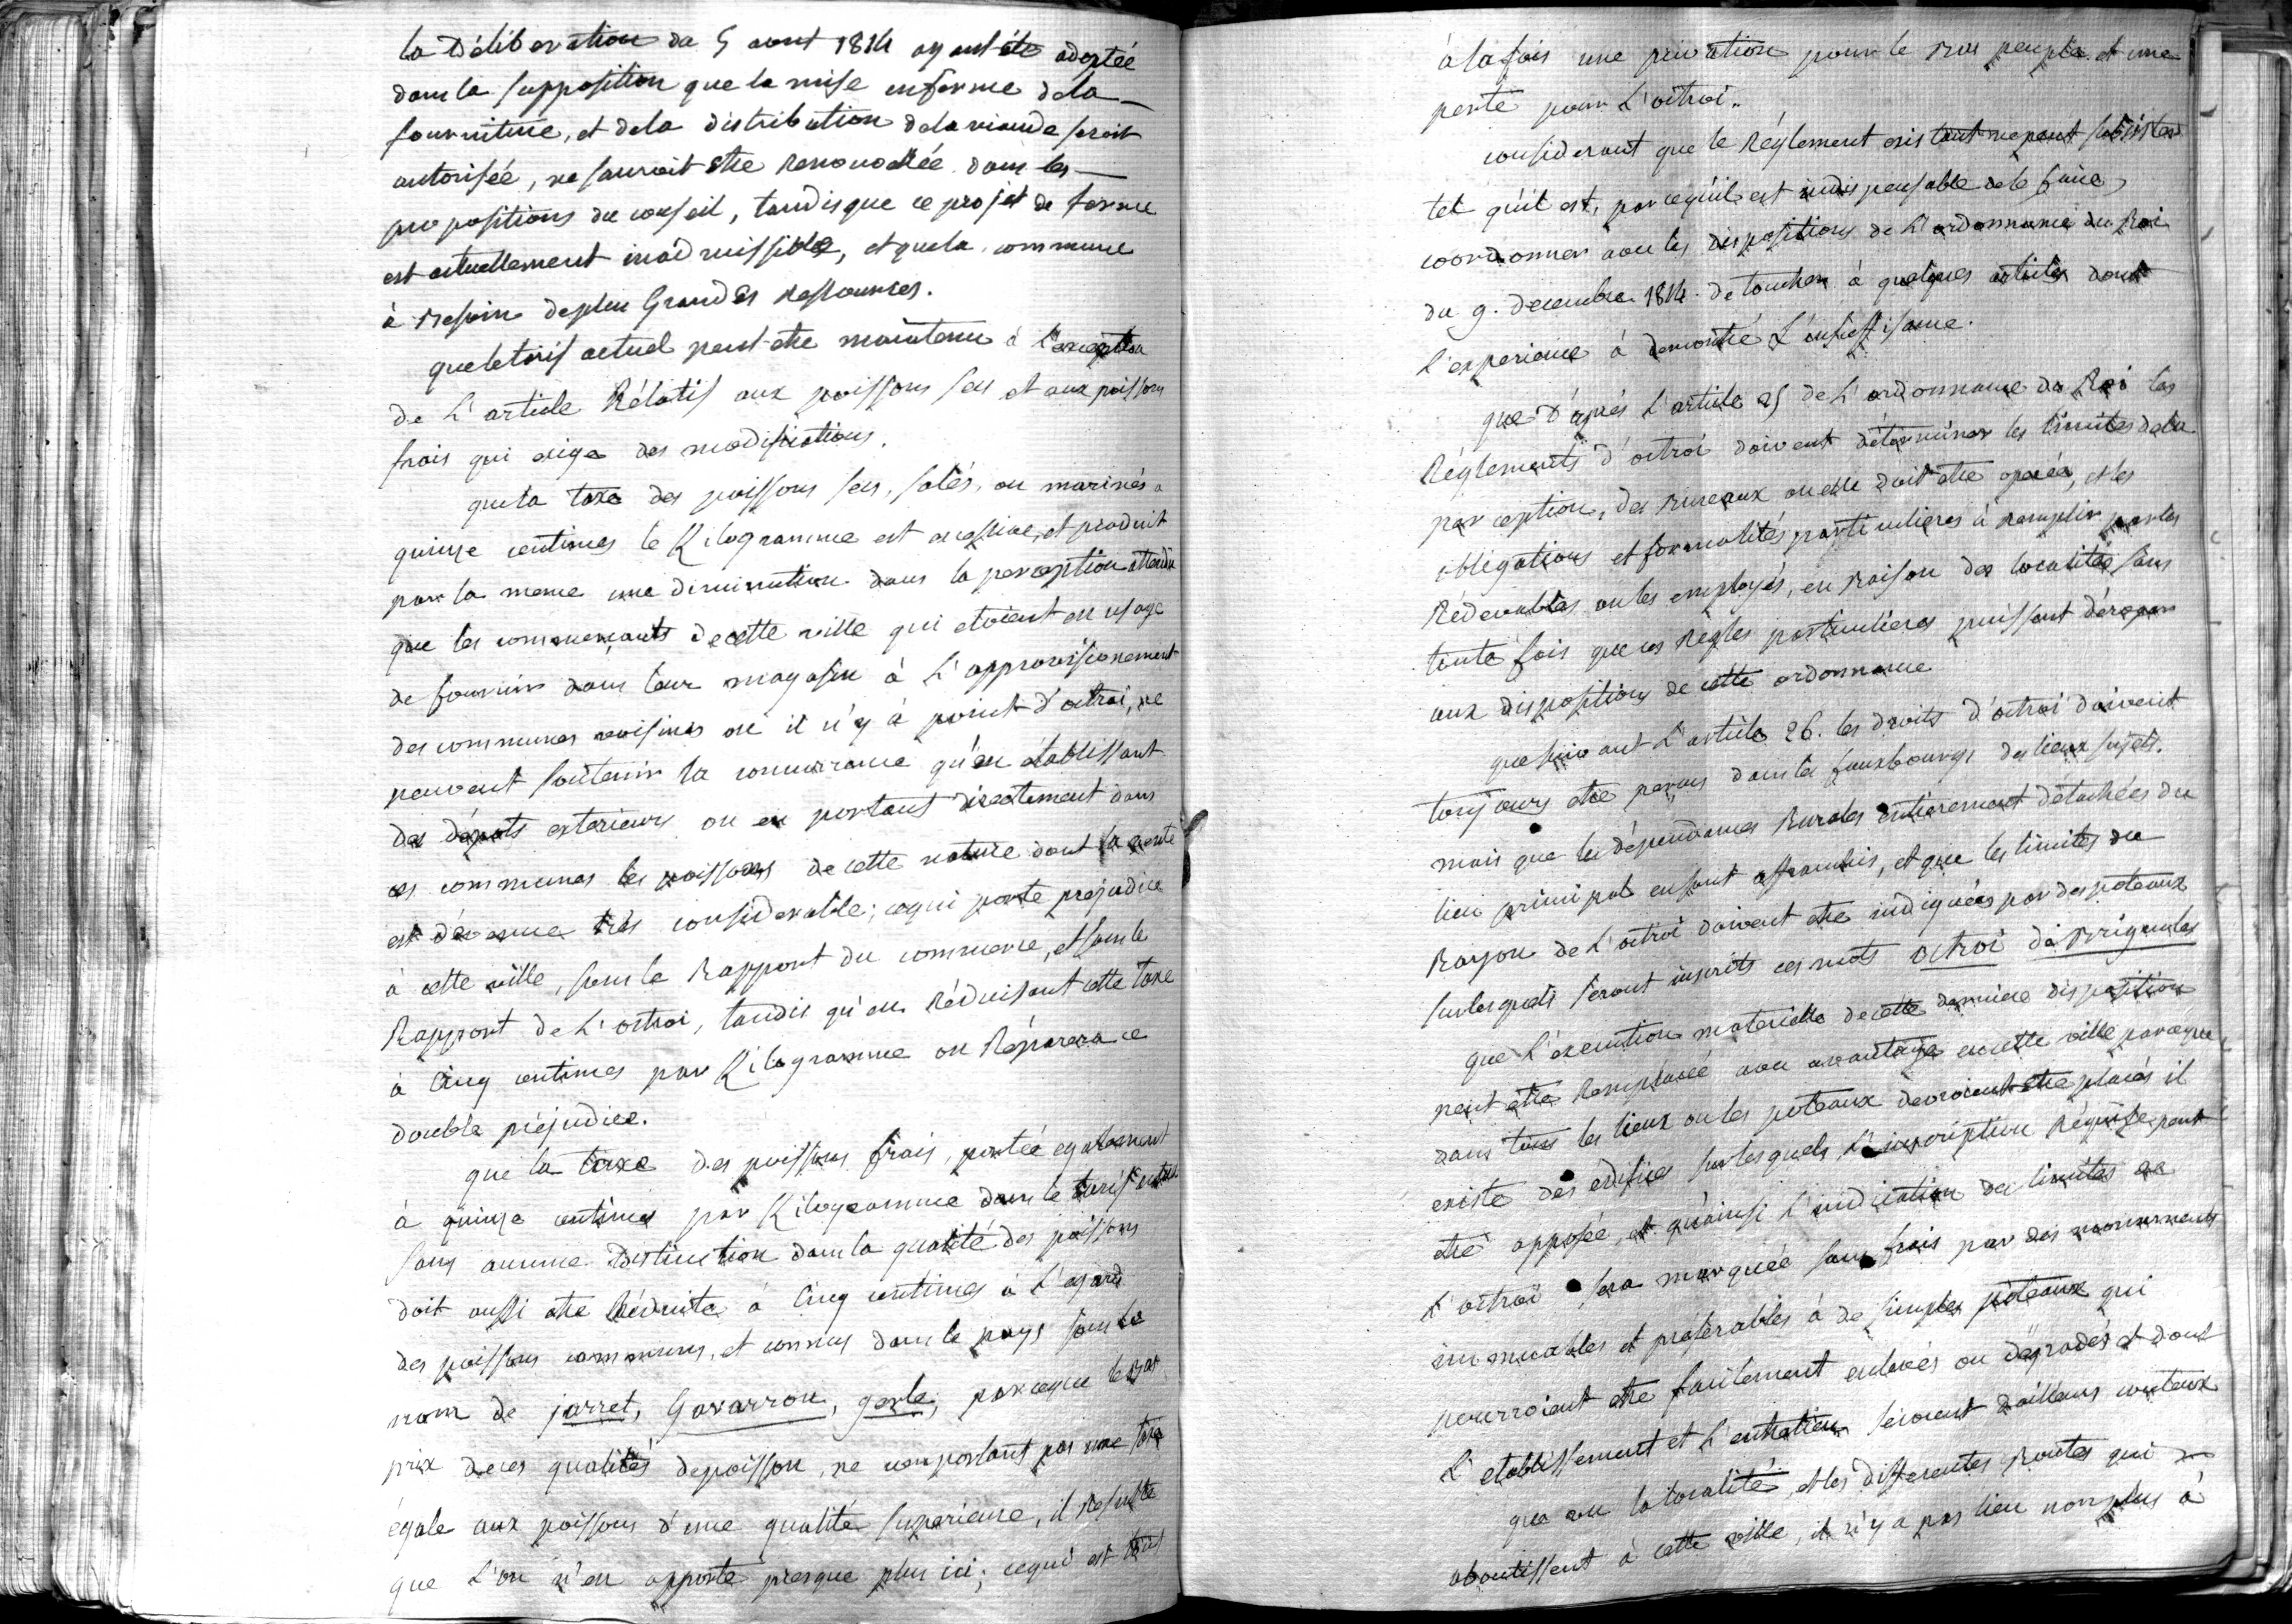 la Déliberation du 5 aout 1814 ayant été adoptée
dans la supposition que la mise en ferme de la
fourniture, et de la distribution de la viande seroit
autorisée, ne sauroit être renouvellée dans les
propositions du conseil, tandis que ce projet de ferme
est actuellement inadmissible, et que la commune
à Besoin de plus Grandes Ressources.
que le tarif actuel peut etre maintenu à l'exception
de L'article Rélatif aux poissons secs et aux poissons
frais qui exige des modifications.
que la taxe des poissons secs, salés, ou marinés a
quinze centimes le Kilogramme est excessive, et produit
par la meme une diminution dans la perception attendu
que les commerçants de cette ville qui etoient en usage
de fournir dans leur magasin à L'approvisionement
des communes voisines où il n'y à point d'octroi, ne
peuvent soutenir la concurrance qu'en établissant
des dépots exterieurs ou en portant directement dans
ces communes les poissons de cette nature dont la vente
est dévenue très considerable; cequi porte prejudice
à cette ville, sous le Rapport du commerce, et sous le
Rapport de L'octroi, tandis qu'en Réduisant cette taxe
à Cinq centimes par Kilogramme on Réparera ce
double préjudice.
que la taxe des poissons frais, portée egalement
à quinze centimes par Kilogramme dans le tarif actuel
sans aucune Distinction dans la qualité des poissons
doit aussi etre Réduite à Cinq centimes à L'egard
des poissons communs, et connus dans le pays sous le
nom de jarret, Gavarron, gerle, parceque le Bas
prix de ces qualités de poisson, ne comportant pas une taxe
égale aux poissons d'une qualité superieure, il resulte
que L'on n'en apporte presque plus ici; cequi est tout
à la fois une privation pour le Bas peuple et une
perte pour L'octroi.
considerant que le Réglement existant ne peut subsister
tel qu'il est, parcequ'il est indispensable de le faire
coordonner avec les dispositions de L'ordonnance du Roi
du 9. decembre 1814. de toucher à quelques articles dont
L'experience à demontré L'insuffisance.
que D'après L'article 25 de L'ordonnance du Roi les
Réglements d'octroi doivent déterminer les limites de la
perception, des Bureaux ou elle doit etre operée, et les
obligations et formalités particulieres à remplir par les
Rédevables ou les employés, en raison des localités sans
toute fois que ces Régles particulieres puissent déroger
aux dispositions de cette ordonnance
que suivant L'article 26. les droits d'octroi doivent
toujours etre perçus dans les fauxbourgs des lieux sujets.
mais que les dépendances Rurales entierement détachées du
lieu principal en sont affranchis, et que les limites du
Rayon de L'octroi doivent etre indiquées par des poteaux
sur lesquels seront inscrits ces mots octroi de Brignoles
que L'execution materielle de cette derniere disposition
peut etre Remplacée avec avantage en cette ville parceque
dans tous les lieux ou les poteaux devroient etre placés il
existe des edifices sur lesquels L'inscription Réquise peut
etre apposée, et qu'ainsi L'indication des limites de
L'octroi sera marquée sans frais par des monuments
immuables et préferables à de simples poteaux qui
pourroient etre facilement enlevés ou dégradés et dont
L'etablissement et L'entretien seroient d'ailleurs couteux
que vu la localité, et les differentes Routes qui
aboutissent à cette ville, il n'y a pas lieu non plus à